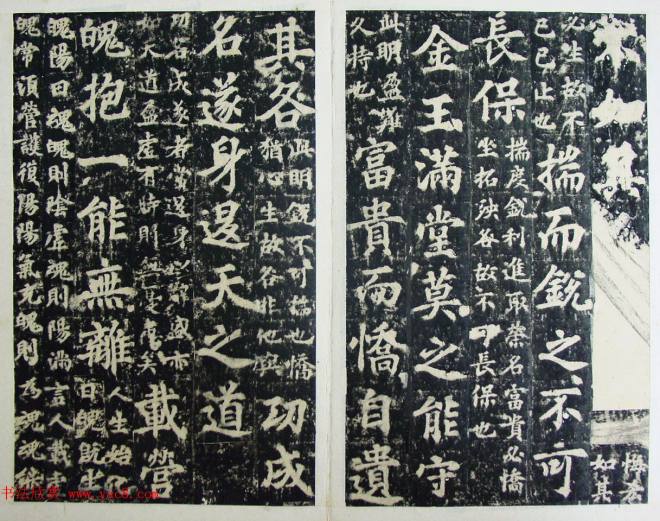 不如其
如其
必生故不
已已止也
揣而銳之不可
長保
揣度銳利進取榮名富貴必憍
坐招殃咎故不可長保也
金玉滿堂莫之能守
此明盈難
久持也
富貴而憍自遺
其咎
此明銳不可揣也憍
猶心生故咎非他與
功成
名遂身退天之道
功名成遂者當退身以辭盛亦
如天道盈虛有時則無憂責矣
載營
魄抱一能無離
人生始化
曰魄既生
魄陽曰魂魄則陰虛魂則陽滿言人載
魄常須營護復陽陽氣充魄則為魂魂能
书法欣赏 www.yac8.com